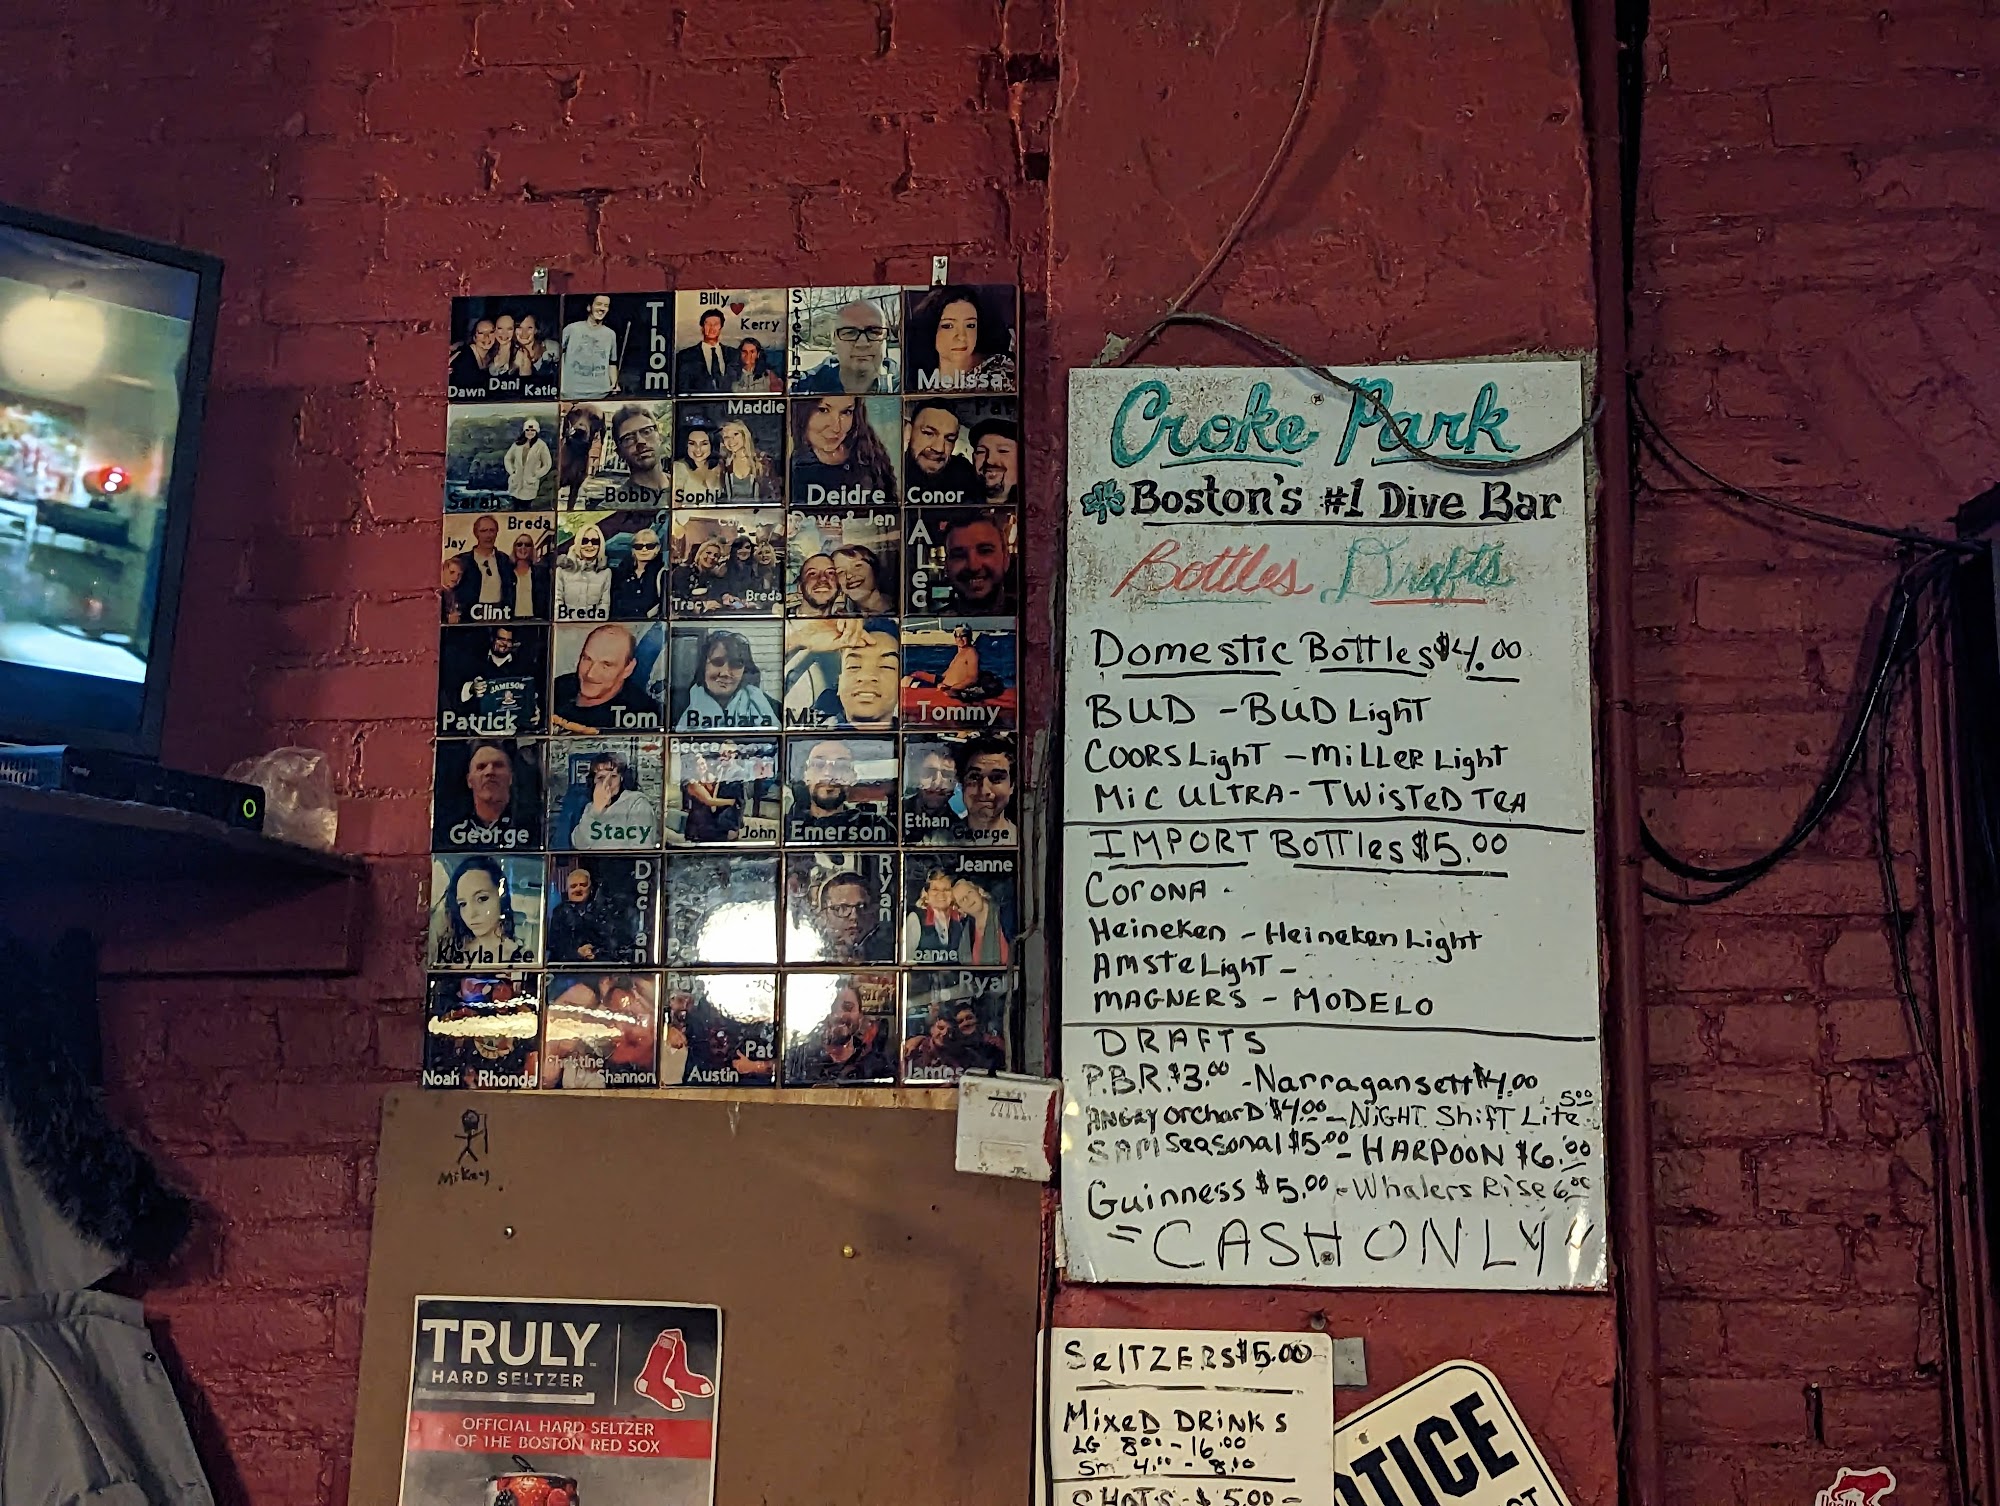 Dawn Dani Katie
Thom
Billy
Kerry
Melissa
Sarah
Bobby
Maddie
Sophi
Deidre
Conor
Jay
Breda
Clint
Breda
Tracy
Breda
Dave & Jen
ALec
Patrick
JAMESON
Tom
Barbara
Tommy
George
Stacy
Becca
John
Emerson
Ethan
George
Kayla Lee
Declan
Ryan
Jeanne
Joanne
Noah Rhonda
Christine
Shannon
Pat
Austin
Ryan
James
Mikey
TRULY
HARD SELTZER
OFFICIAL HARD SELTZER
OF THE BOSTON RED SOX
Croke Park
Boston's #1 Dive Bar
Bottles Drafts
Domestic Bottles $4.00
BUD - BUD Light
COORS Light - MiLLER Light
MiC ULTRA - TWiSTED TEA
IMPORT Bottles $5.00
CORONA -
Heineken - Heineken Light
AmsteLight -
MAGNERS - MODELO
DRAFTS
P.B.R. $3.00 - Narragansett $4.00
ANGRY OrcharD $4.00 - NiGHT Shift Lite 5.00
SAM Seasonal $5.00 - HARPOON $6.00
Guinness $5.00 - Whalers Rise 6.00
"CASH ONLY"
SelTZERS $5.00
MixeD DRiNKS
LG 8.00 - 16.00
Sm 4.00 - 8.00
SHOTS - $5.00 -